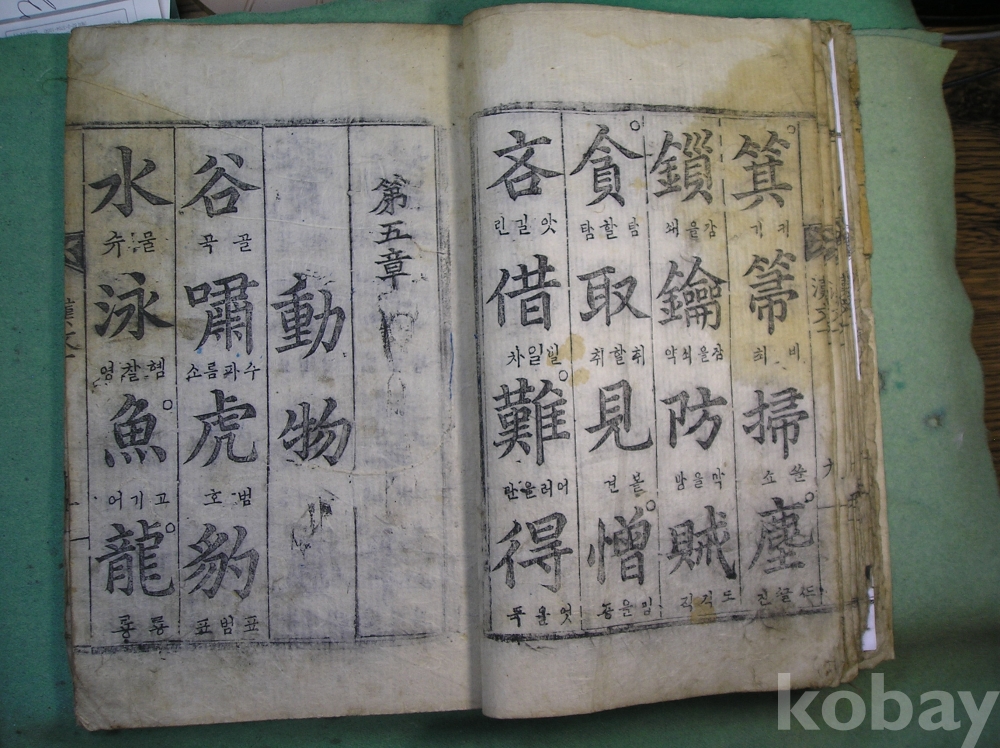 箕
키 기
箒
비
掃
쓸 소
塵
진
鎖
잠을쇄
鑰
잠을쇠약
防
막을방
賊
도적적
貪
탐할탐
取
취할취
見
볼 견
憎
吝
앗길린
借
빌일차
難
어려울란
得
엇을득
第五章
動物
谷
골 곡
嘯
수파름소
虎
범 호
豹
표범표
水
물 슈
泳
영
魚
고기어
龍
룡 룡
kobay